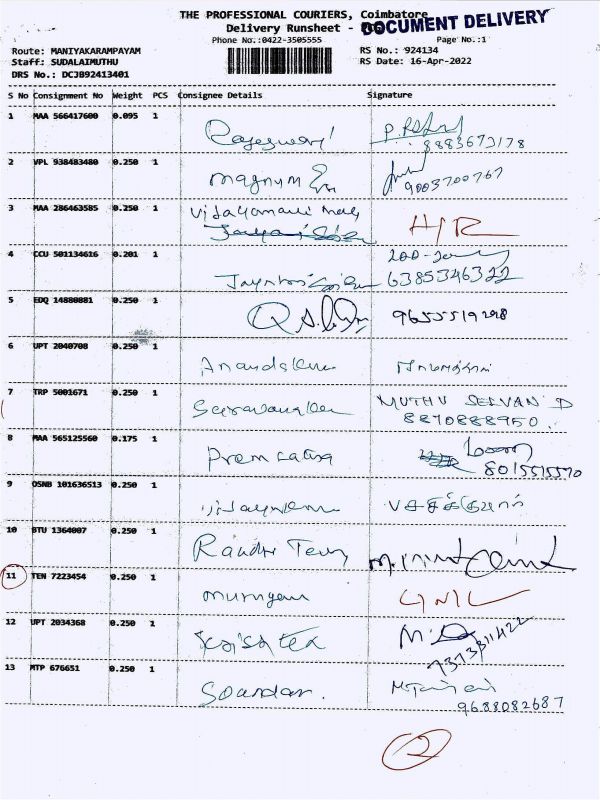 THE PROFESSIONAL COURIERS, Coimbatore
DOCUMENT DELIVERY
Delivery Runsheet -
Phone No.:0422-3505555
Page No.:1
Route: MANIYAKARAMPAYAM
RS No.: 924134
Staff: SUDALAIMUTHU
RS Date: 16-Apr-2022
DRS No.: DCJB92413401
S No Consignment No Weight PCS Consignee Details Signature
1 MAA 566417600 0.095 1 Rajeswari
8883673178
2 VPL 938483480 0.250 1 magnum
9003700767
3 MAA 286463585 0.250 1 Vijayamani
4 CCU 501134616 0.201 1
6385346322
5 EDQ 14880881 0.250 1 9655519298
6 UPT 2040708 0.250 1 Anandakumar
7 TRP 5001671 0.250 1 MUTHU SELVAN D
8870888950
8 MAA 565125560 0.175 1 Prem
8015515570
9 OSNB 101636513 0.250 1
10 BTU 1364007 0.250 1
11 TEN 7223454 0.250 1 murugan
12 UPT 2034368 0.250 1 tex
7373311422
13 MTP 676651 0.250 1 Soundar.
9688082687
2